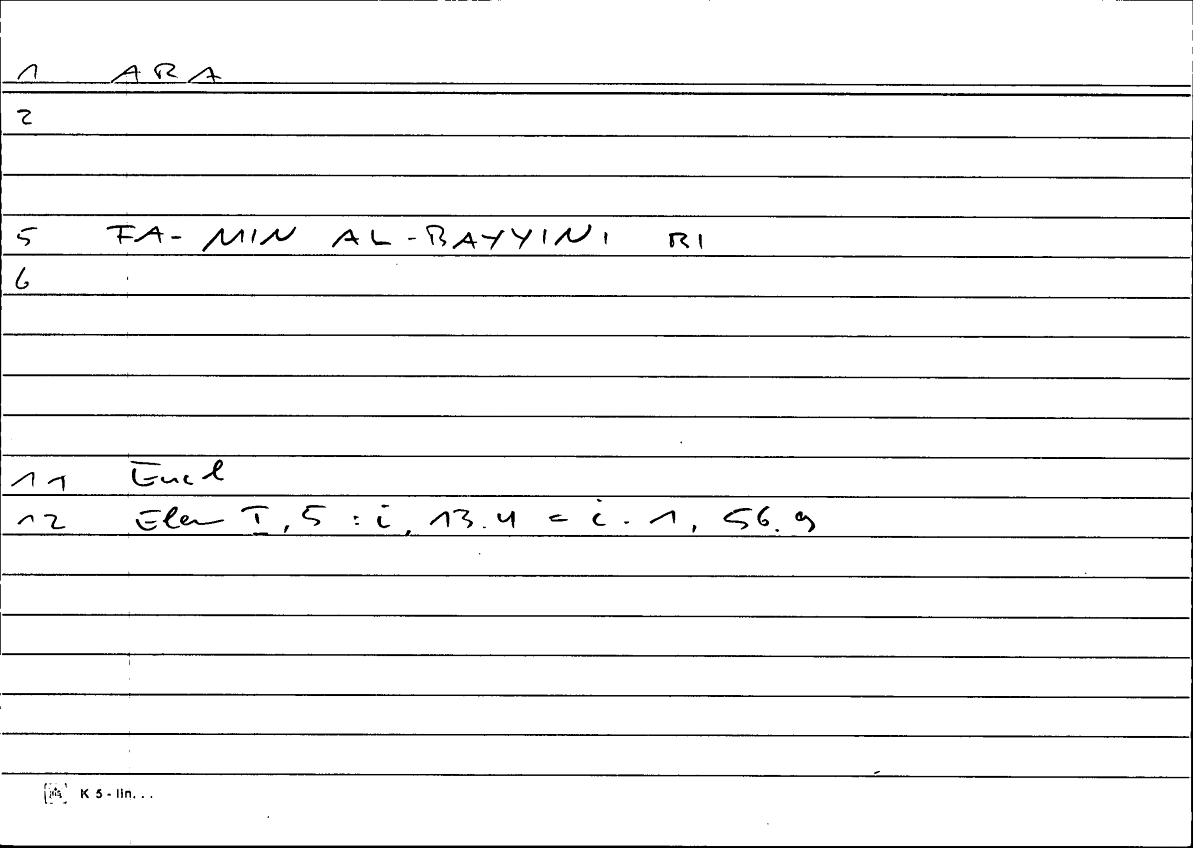 1 ARA
2
5 FA-MIN AL-BAYYINI RI
6
11 Eucl
12 Elem I, 5 : i, 13.4 = i. 1, 56.9
K 5 - lin. . .